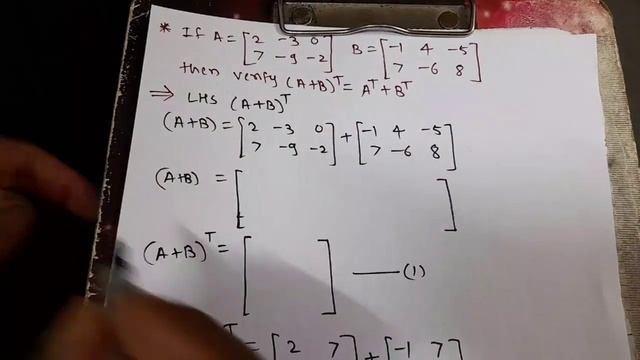 * If A = [2 -3 0 B = [-1 4 -5
7 -9 -2] 7 -6 8]
then verify (A+B)ᵀ = Aᵀ + Bᵀ
⇒ LHS (A+B)ᵀ
(A+B) = [2 -3 0 + [-1 4 -5
7 -9 -2] 7 -6 8]
(A+B) = [ ]
(A+B)ᵀ = [ ] —— (1)
ᵀ = [2 7] + [-1 7]